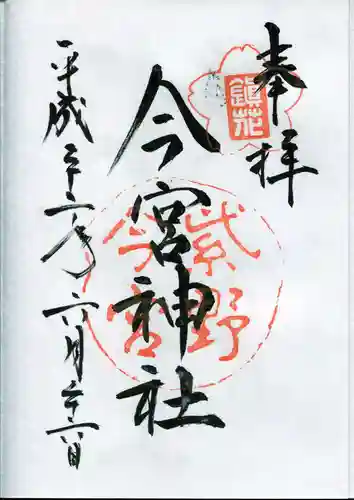 奉拝
鎮花
今宮神社
紫野
今宮
平成二十二年六月二十六日